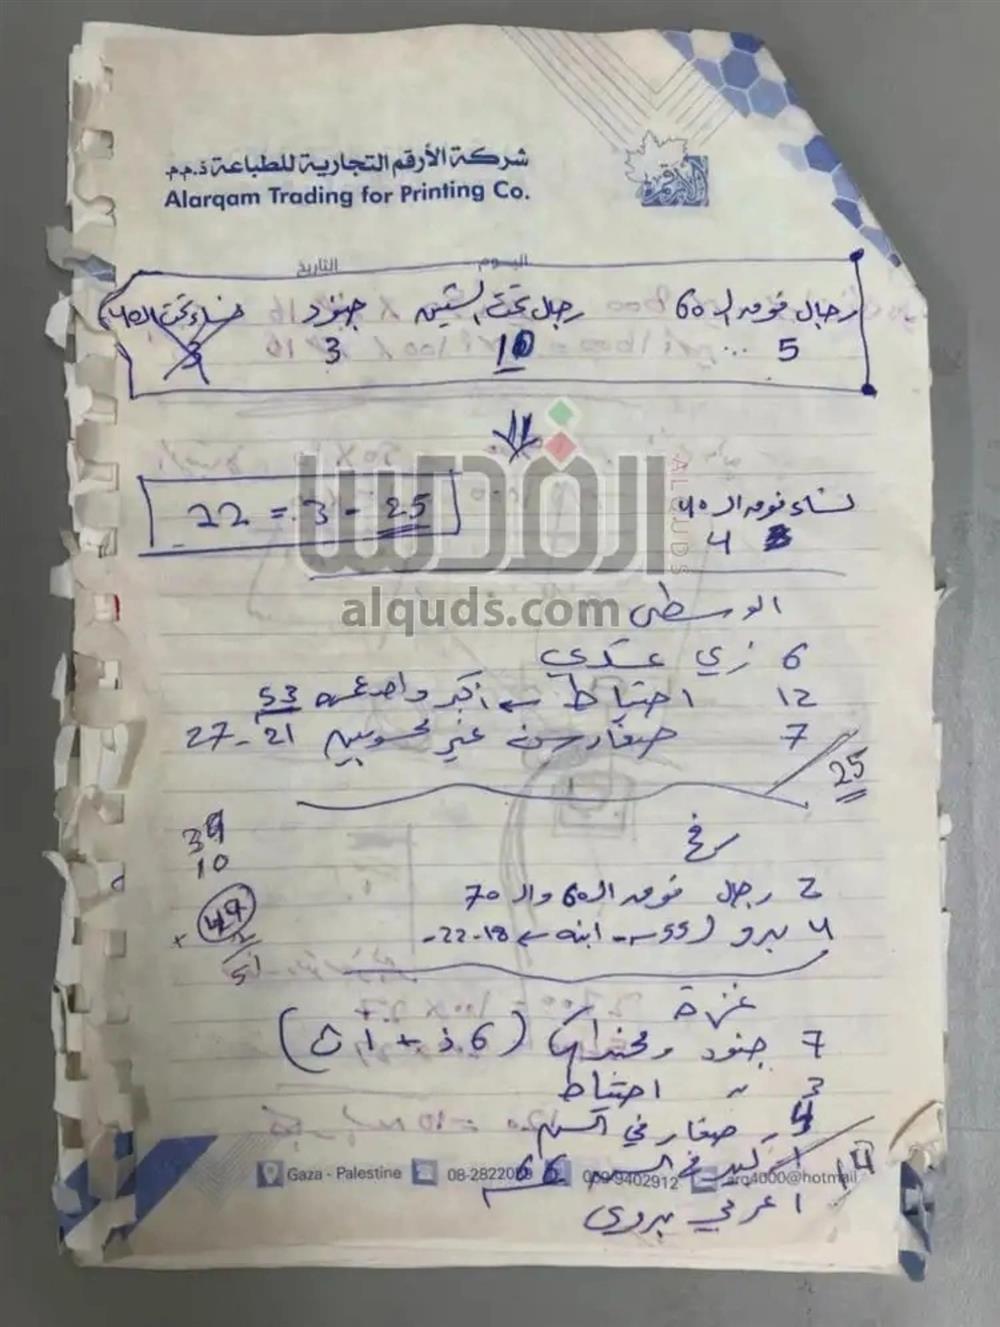 شركة الأرقم التجارية للطباعة ذ.م.م
Alarqam Trading for Printing Co.
الأرقم
اليوم التاريخ
رجال فوق الـ 60 رجال تحت الستين جنود نساء تحت الـ 40
5 ... 10 3 3
نساء فوق الـ 40
4
25 - 3 = 22
القدس
ALQUDS
alquds.com
الوسطى
6 زي عسكري
12 احتياط ← أكبر واحد عمره 53
7 صغار سن غير محسوبين 21 - 27
25
39
10
49
51
رفح
2 رجال فوق الـ 60 والـ 70
4 بدو (55 سـ - ابنه ← 18-22-
غزة
7 جنود ومجندات (6 ذ + 1 ث)
3 " احتياط
4 - صغار في السن
1 - كبير في السن 66
14
1 عربي بدوي
Gaza - Palestine
08-2822
9402912
arq4000@hotmail